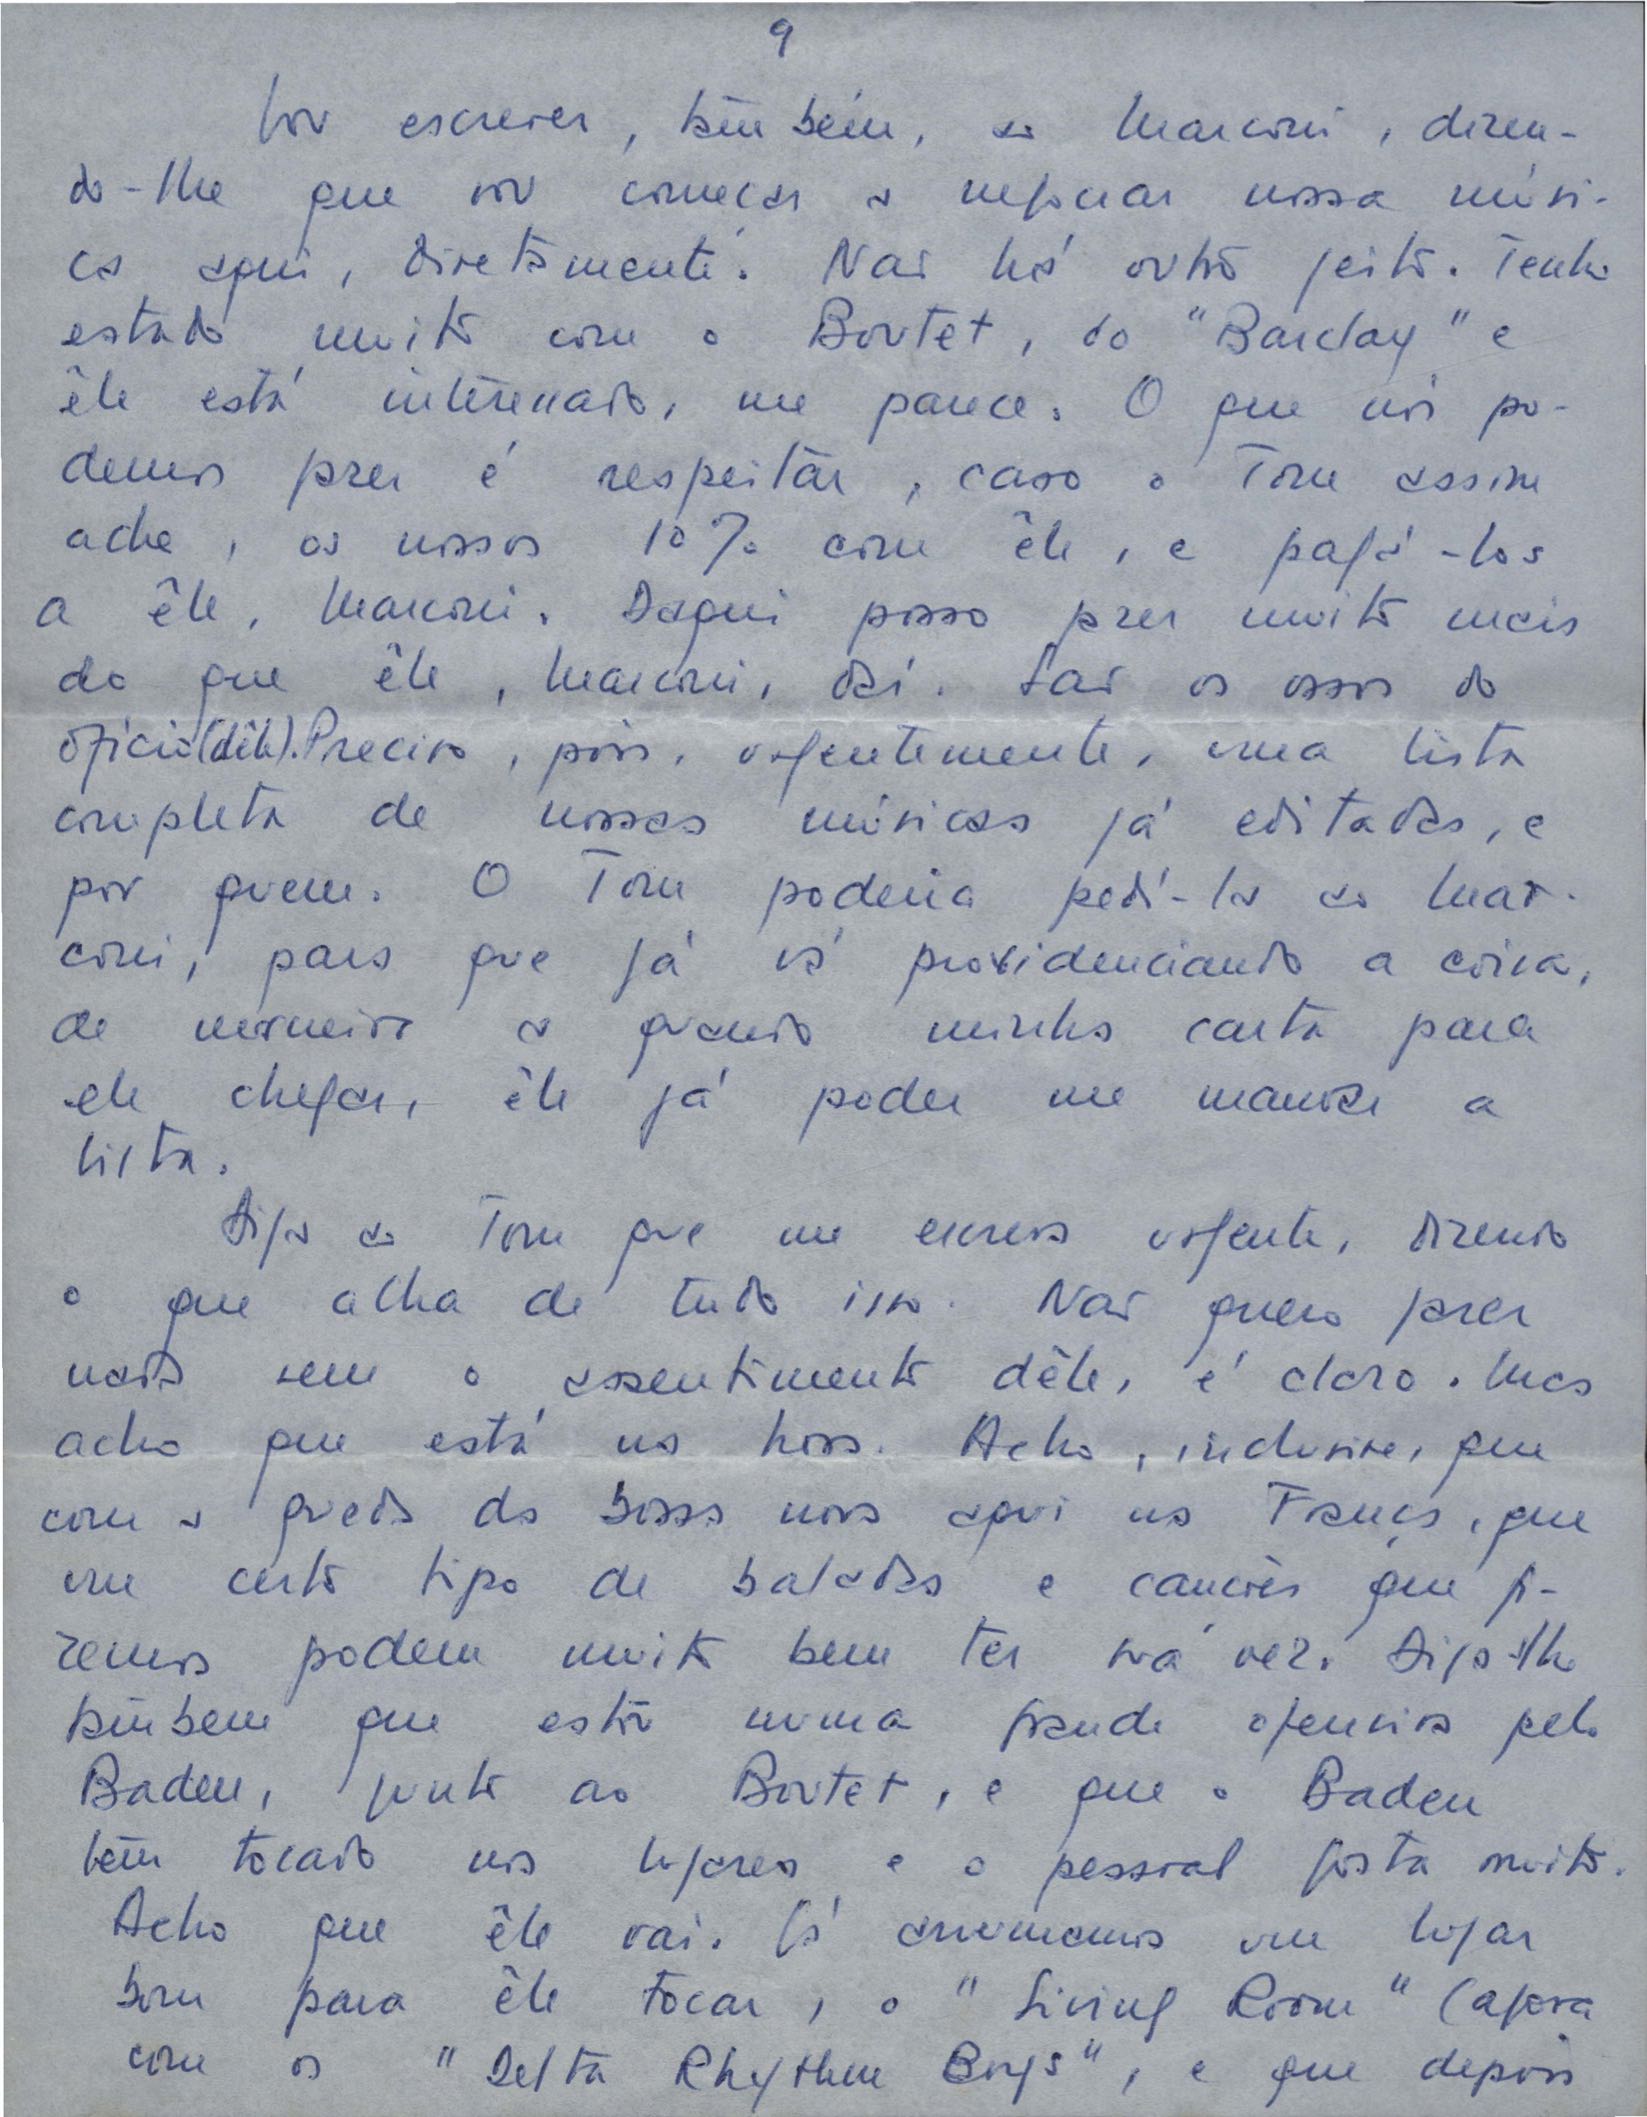 9
Vou escrever, também, ao Marconi, dizen-
do-lhe que vou começar a negociar nossa músi-
ca aqui, diretamente. Não há outro jeito. Tenho
estado muito com o Boutet, do "Barclay" e
êle está interessado, me parece. O que nós po-
demos fazer é respeitar, caso o Tom assim
ache, os nossos 10% com êle, e pagá-los
a êle, Marconi. Daqui posso fazer muito mais
do que êle, Marconi, daí. São os ossos do
ofício (dêle). Preciso, pois, urgentemente, uma lista
completa de nossas músicas já editadas, e
por quem. O Tom poderia pedí-la ao Mar-
coni, para que já vá providenciando a coisa,
de maneira a quando minha carta para
ele chegar, êle já poder me mandar a
lista.
Diga ao Tom que me escreva urgente, dizendo
o que acha de tudo isso. Não quero fazer
nada sem o assentimento dêle, é claro. Mas
acho que está na hora. Acho, inclusive, que
com a queda da bossa nova aqui na França, que
um certo tipo de baladas e canções que fi-
zemos podem muito bem ter sua vez. Diga-lhe
também que estou numa grande ofensiva pelo
Baden, junto ao Boutet, e que o Baden
tem tocado nos lugares e o pessoal gosta muito.
Acho que êle vai. Já arrumamos um lugar
bom para êle tocar, o "Living Room" (agora
com os "Delta Rhythm Boys", e que depois